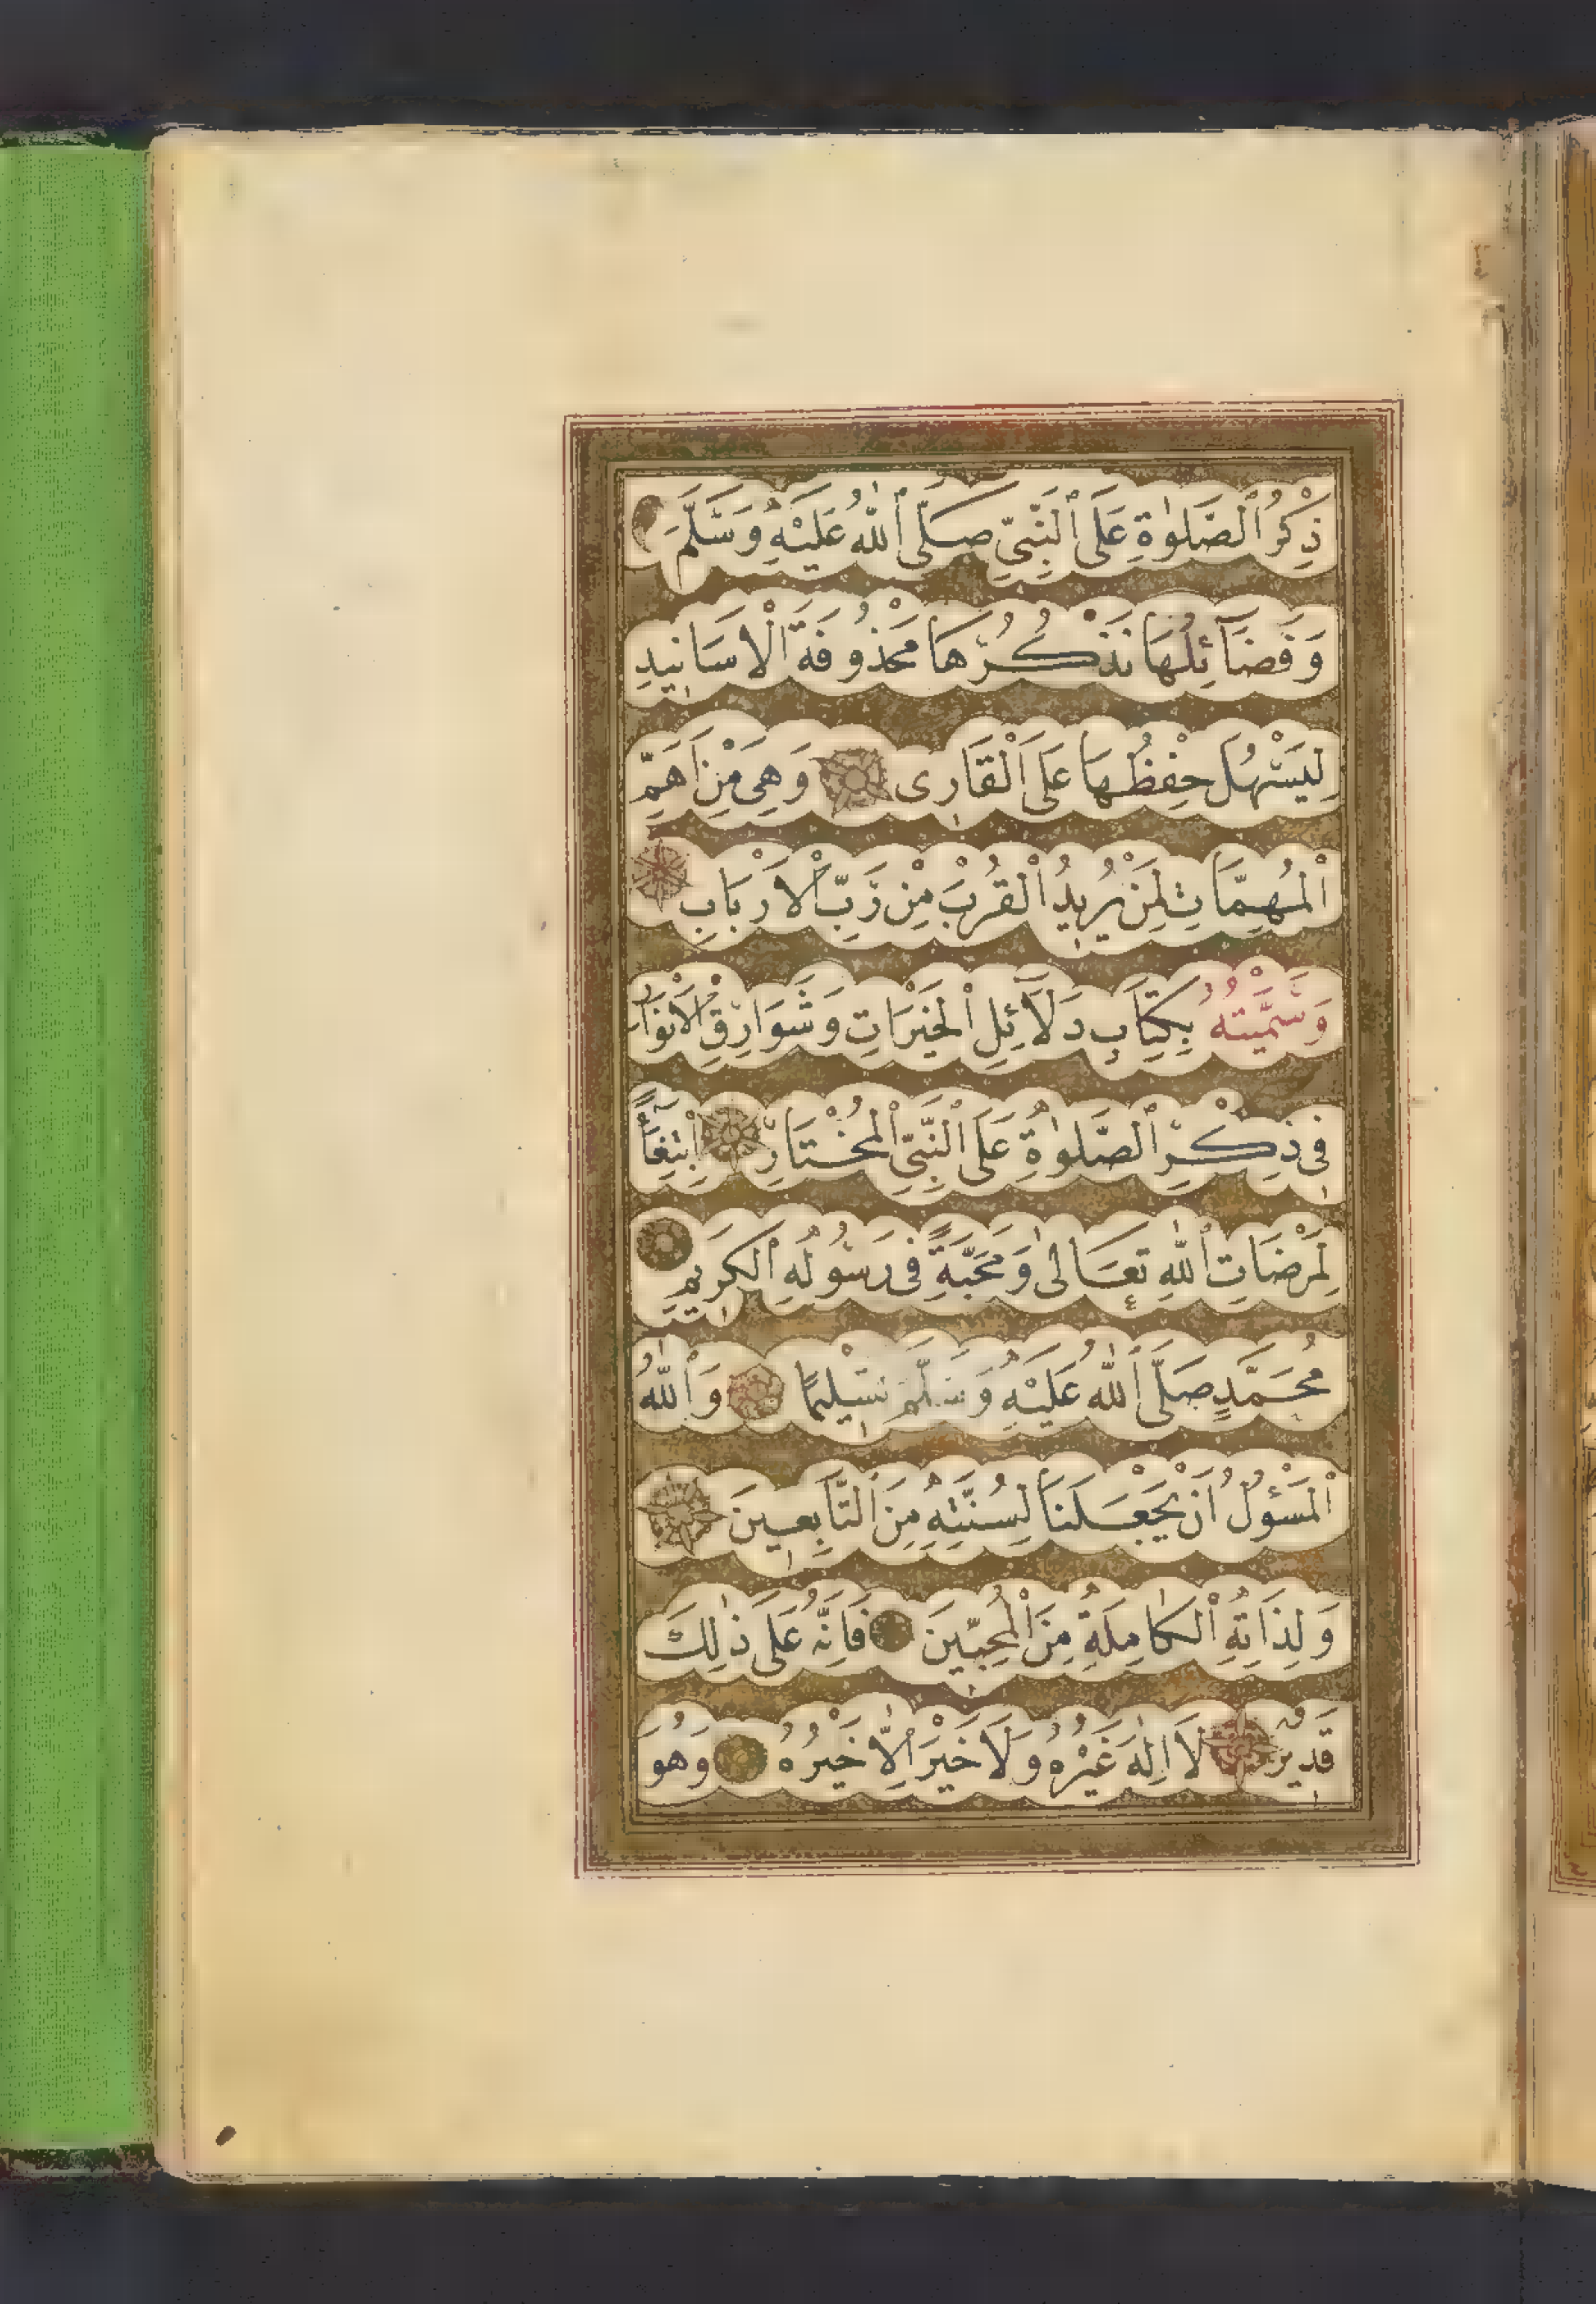 ذِكْرُ ٱلصَّلٰوةِ عَلَى ٱلنَّبِىِّ صَلَّى ٱللّٰهُ عَلَيْهِ وَسَلَّمَ
وَفَضَآئِلُهَا نَذْكُرُهَا مَحْذُوفَةَ الْاَسَانِيدِ
لِيَسْهُلَ حِفْظُهَا عَلَى الْقَارِى وَهِىَ مِنْ اَهَمِّ
ٱلْمُهِمَّاتِ لِمَنْ يُرِيدُ ٱلْقُرْبَ مِنْ رَبِّ الْاَرْبَابِ
وَسَمَّيْتُهُ بِكِتَابِ دَلَآئِلِ ٱلْخَيْرَاتِ وَشَوَارِقِ الْاَنْوَارِ
فِى ذِكْرِ ٱلصَّلٰوةِ عَلَى ٱلنَّبِىِّ ٱلْمُخْتَارِ اِبْتِغَآءً
لِمَرْضَاتِ ٱللّٰهِ تَعَالٰى وَمَحَبَّةً فِى رَسُولِهِ ٱلْكَرِيمِ
مُحَمَّدٍ صَلَّى ٱللّٰهُ عَلَيْهِ وَسَلَّمَ تَسْلِيمًا وَٱللّٰهُ
ٱلْمَسْؤُلُ اَنْ يَجْعَلَنَا لِسُنَّتِهِ مِنَ ٱلتَّابِعِينَ
وَلِذَاتِهِ ٱلْكَامِلَةِ مِنَ ٱلْمُحِبِّينَ فَاِنَّهُ عَلَى ذٰلِكَ
قَدِيرٌ لَا اِلٰهَ غَيْرُهُ وَلَا خَيْرَ اِلَّا خَيْرُهُ وَهُوَ